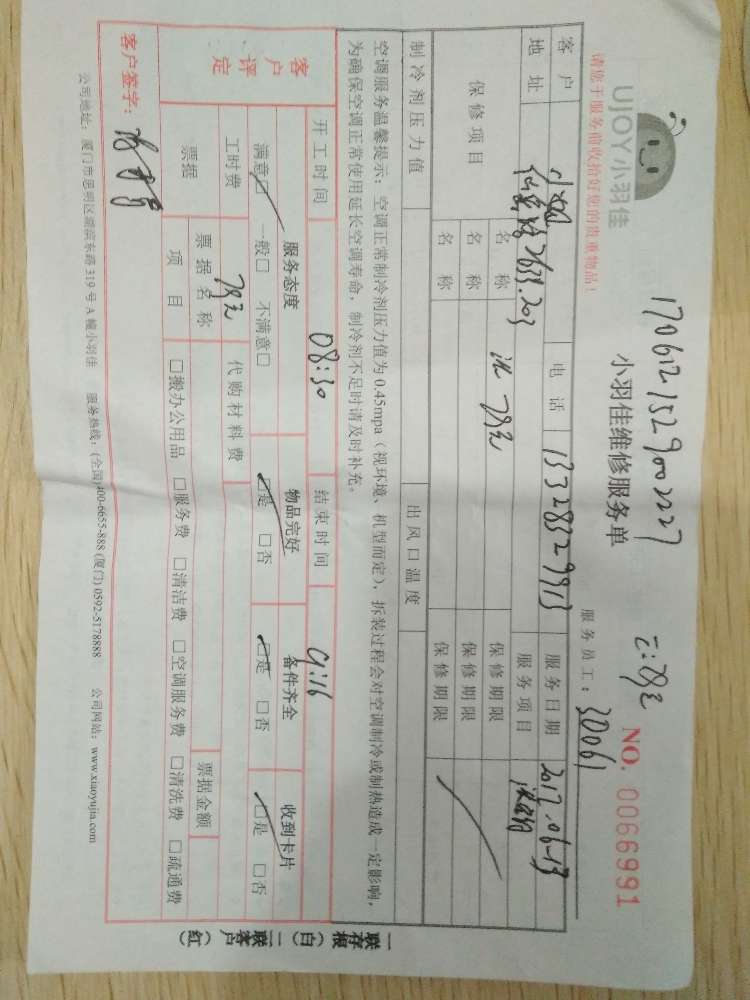 1706121529002227
UJOY小羽佳
小羽佳维修服务单
NO. 0066991
请您于服务前收拾好您的贵重物品！
服务员工：30061
客户 电话 13328329913 服务日期 2017.06-13
地址 服务项目
保修项目 名称 保修期限
名称 保修期限
名称 保修期限
制冷剂压力值 出风口温度
空调服务温馨提示：空调正常制冷剂压力值为0.45mpa（视环境、机型而定），拆装过程会对空调制冷或制热造成一定影响，
为确保空调正常使用延长空调寿命，制冷剂不足时请及时补充。
开工时间 08:30 结束时间 9:16
客户评定 服务态度 物品完好 备件齐全 收到卡片
满意□ 一般□ 不满意□ □是 □否 □是 □否 □是 □否
工时费 78元 代购材料费
票据 票据名称 票据金额
项目 □搬办公用品 □服务费 □清洁费 □空调服务费 □清洗费 □疏通费
客户签字：
公司地址：厦门市思明区湖滨东路319号A幢小羽佳 服务热线：(全国)400-6655-888 (厦门) 0592-5178888 公司网站：www.xiaoyujia.com
一联存根（白）二联客户（红）